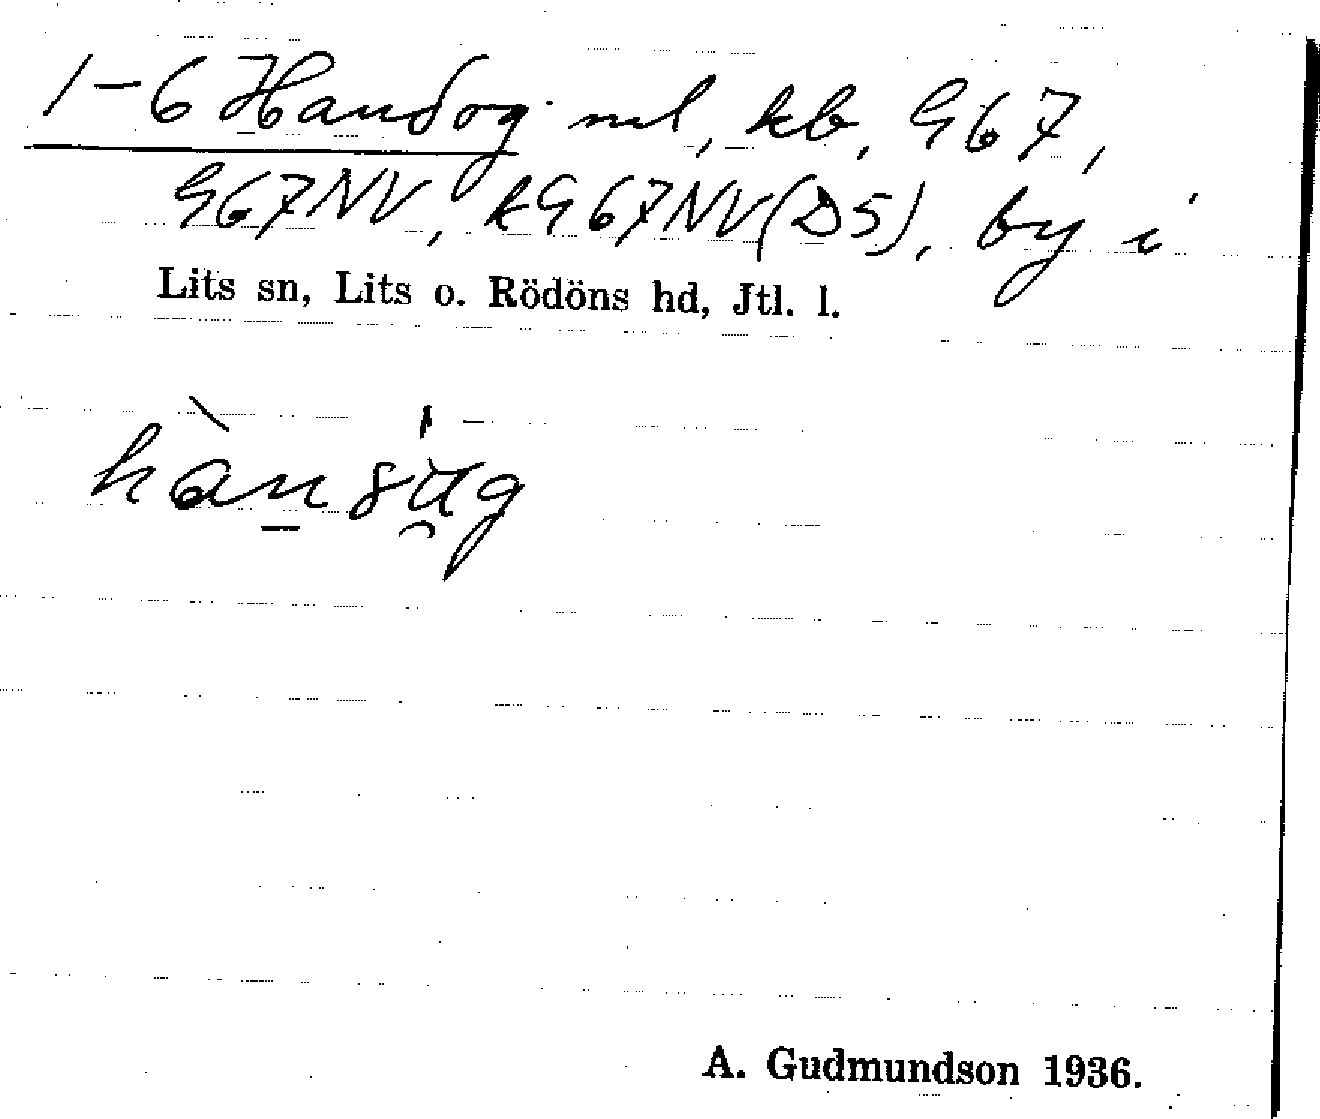 1-6 Handog ml, kb, G67,
G67NV, kG67NV(D5), by i
Lits sn, Lits o. Rödöns hd, Jtl. l.
A. Gudmundson 1936.